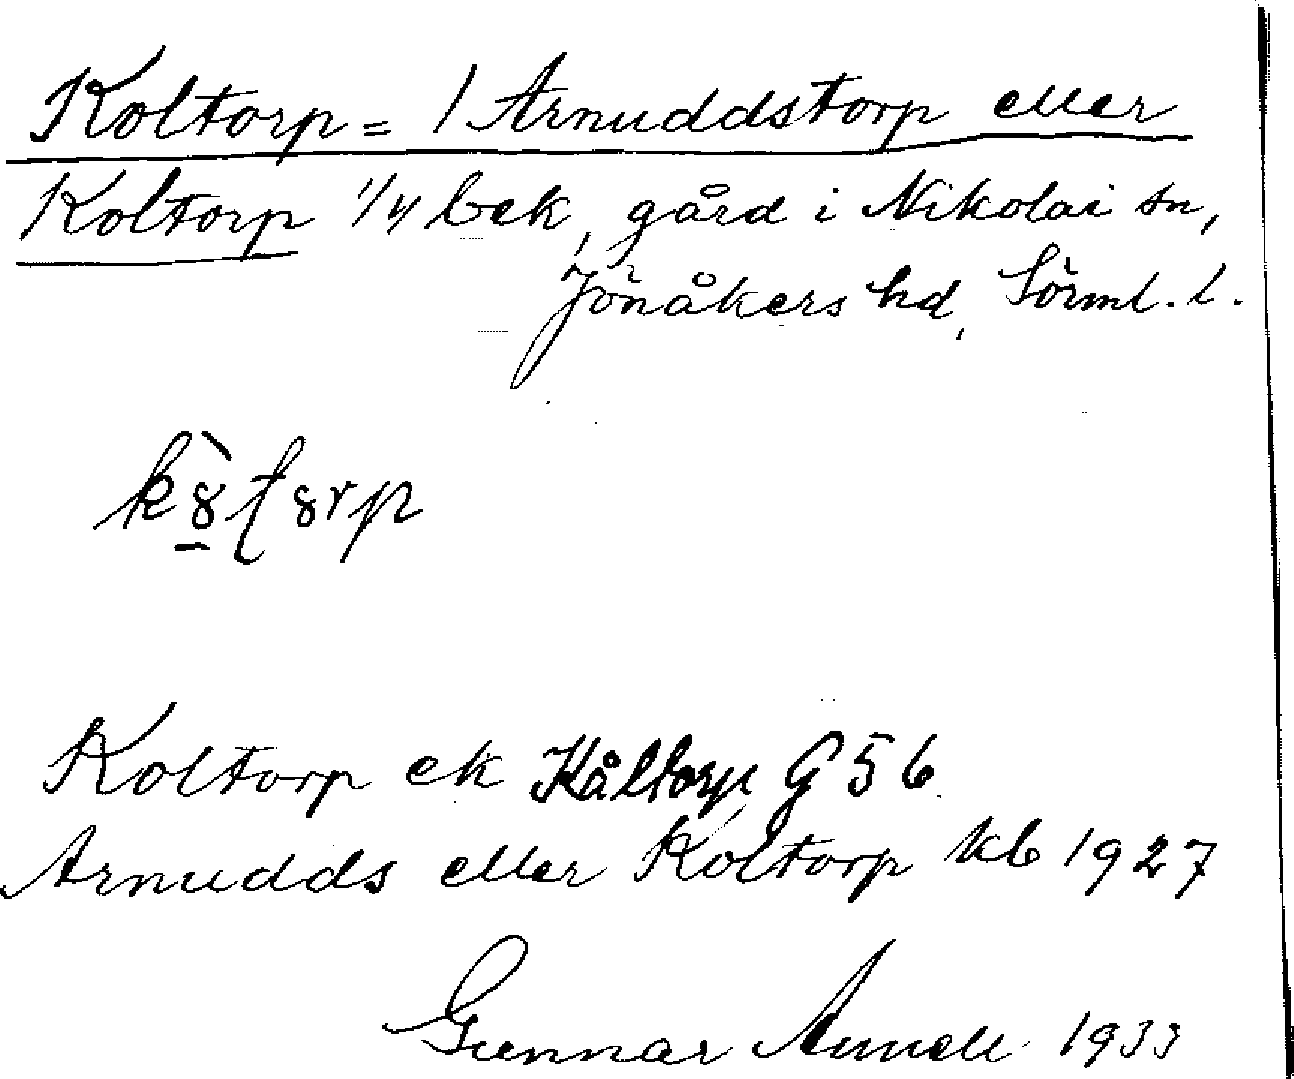 Koltorp = / Arnuddstorp eller
Koltorp 1/4 bek, gård i Nikolai sn,
Jönåkers hd, Sörml. l.
Koltorp ek Kåltorp G 56
Arnudds eller Koltorp kb 1927
Gunnar Annell 1933